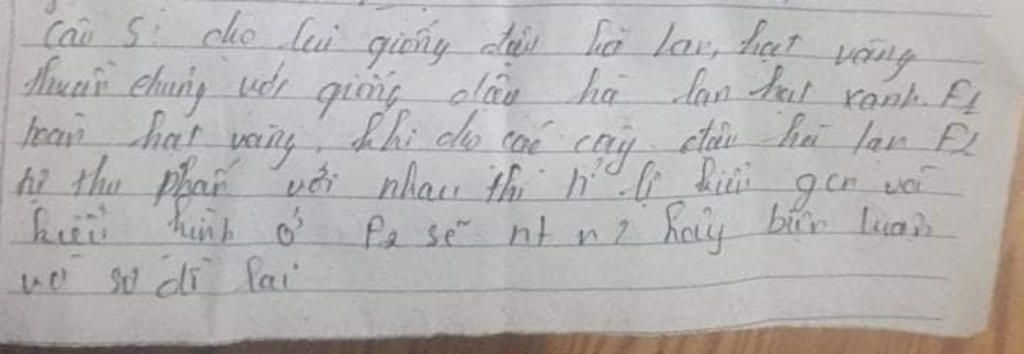 Câu 5: cho lai giống đậu hà lan, hạt vàng
thuần chủng với giống đậu hà lan hạt xanh. F1
toàn hạt vàng. Khi cho các cây đậu hà lan F1
tự thụ phấn với nhau thì tỉ lệ kiểu gen và
kiểu hình ở F2 sẽ nt n? hãy biện luận
vẽ sơ đồ lai